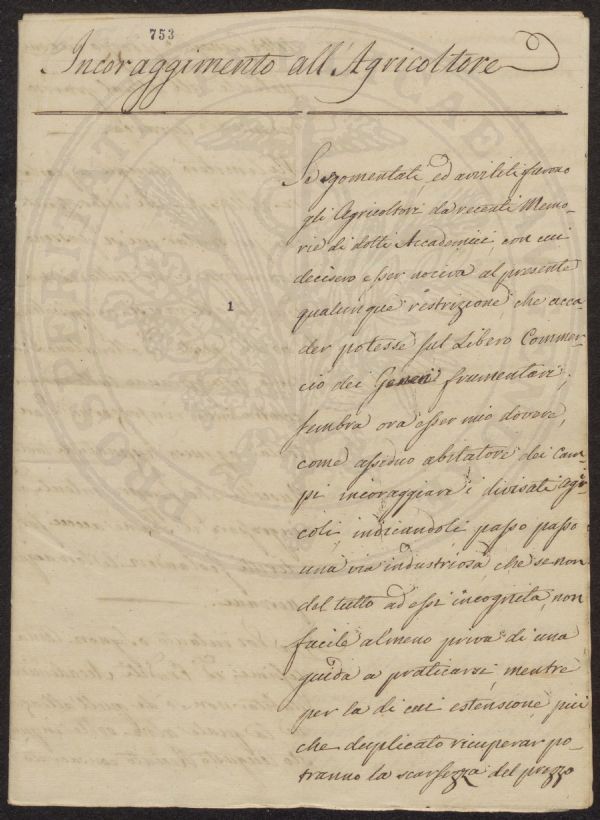 753
Incoraggimento all Agricoltore
Se sgomentati, ed avviliti furono
gli Agricoltori da recenti Memo-
rie di dotti Accademici, con cui
decisero esser nociva al presente
qualunque restrizione, che acca-
der potesse sul Libero Commer-
cio dei Generi frumentari;
sembra ora esser mio dovere,
1
come assiduo abitatore dei cam-
pi incoraggiare i divisati Agri-
coli, indicandoli passo passo
una via industriosa, che se non
del tutto ad essi incognita, non
facile almeno priva di una
guida a praticarsi, mentre
per la di cui estensione più
che duplicato ricuperar po-
tranno la scarsezza del prezzo